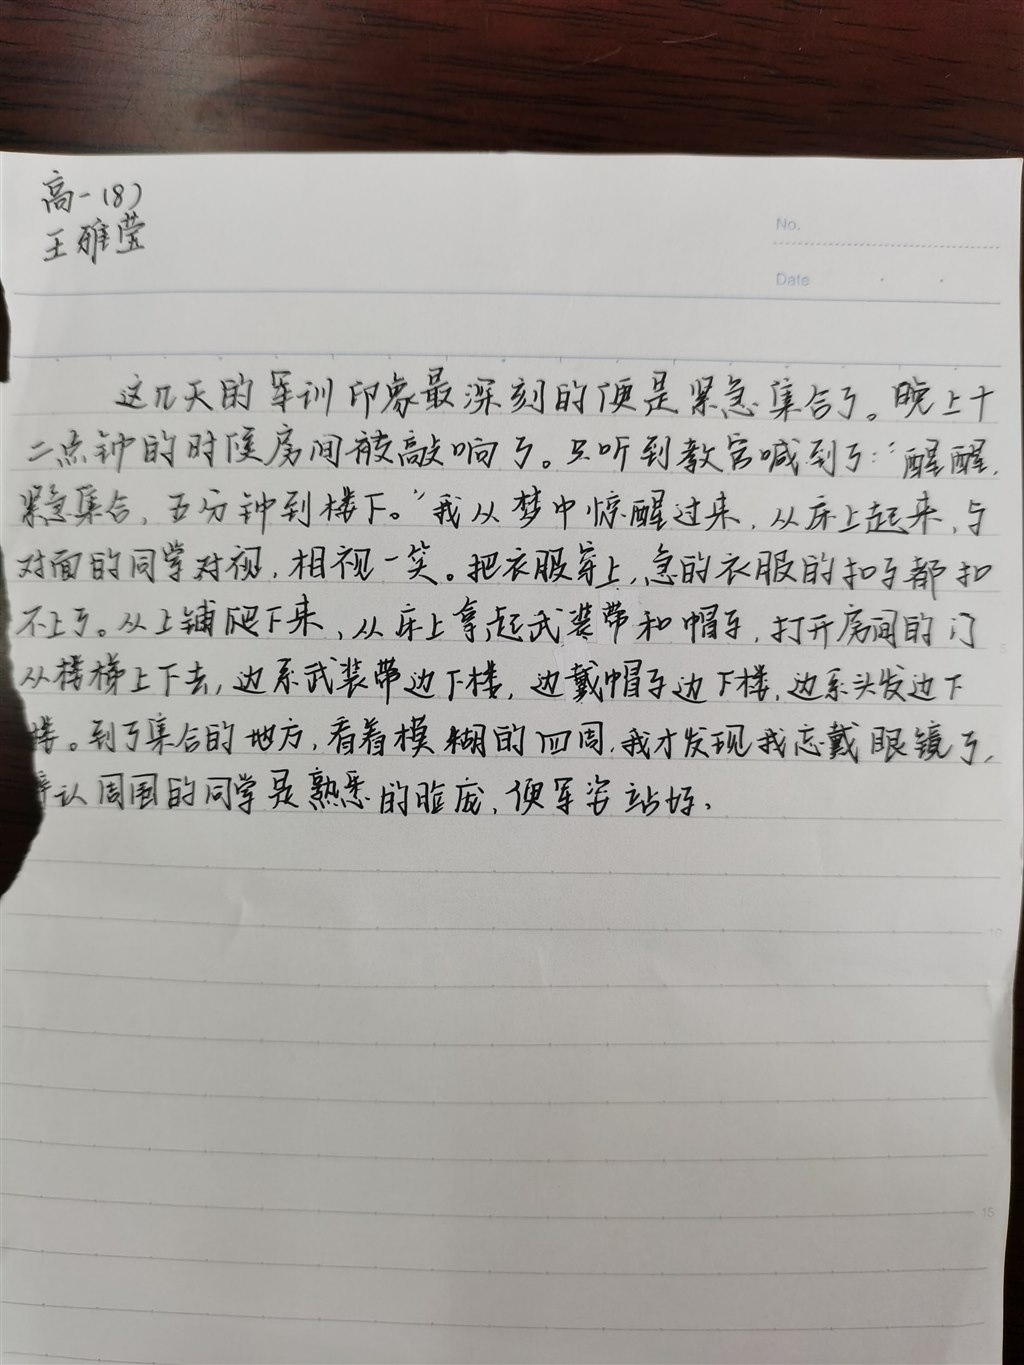 高一(8)
王雅莹
No.
Date
这几天的军训印象最深刻的便是紧急集合了。晚上十
二点钟的时候房间被敲响了。只听到教官喊到了:“醒醒,
紧急集合,五分钟到楼下。”我从梦中惊醒过来,从床上起来,与
对面的同学对视,相视一笑。把衣服穿上,急的衣服的扣子都扣
不上了。从上铺爬下来,从床上拿起武装带和帽子,打开房间的门
从楼梯上下去,边系武装带边下楼,边戴帽子边下楼,边系头发边下
楼。到了集合的地方,看着模糊的四周,我才发现我忘戴眼镜了,
认周围的同学是熟悉的脸庞,便军姿站好。
5
10
15